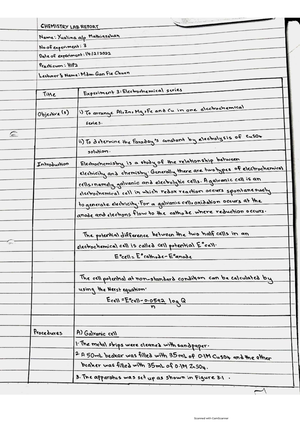 CHEMISTRY LAB REPORT
Name: Yualina a/p Mathiseelan
No of experiment: 3
Date of experiment: 14/2/2022
Practicum: H1P2
Lecturer's Name: Mdm Gan Fie Chuen
Time
Experiment 3: Electrochemical series
Objective (s)
i) To arrange Al, Zn, Mg, Fe and Cu in one electrochemical
series.
ii) To determine the Faraday's constant by electrolysis of CuSO4
solution.
Introduction
Electrochemistry is a study of the relationship between
electricity and chemistry. Generally, there are two types of electrochemical
cells namely, galvanic and electrolytic cells. A galvanic cell is an
electrochemical cell in which redox reaction occurs spontaneously
to generate electricity. For a galvanic cell, oxidation occurs at the
anode and electrons flow to the cathode where reduction occurs.
The potential difference between the two half cells in an
electrochemical cell is called cell potential, E°cell.
E°cell = E°cathode - E°anode
The cell potential at non-standard condition can be calculated by
using the Nerst equation:
Ecell = E°cell - 0.0592/n log Q
Procedures
A) Galvanic cell
1. The metal strips were cleaned with sandpaper.
2. A 50mL beaker was filled with 35 mL of 0.1M CuSO4 and the other
beaker was filled with 35mL of 0.1M ZnSO4.
3. The apparatus was set up as shown in Figure 3.1
Scanned with CamScanner